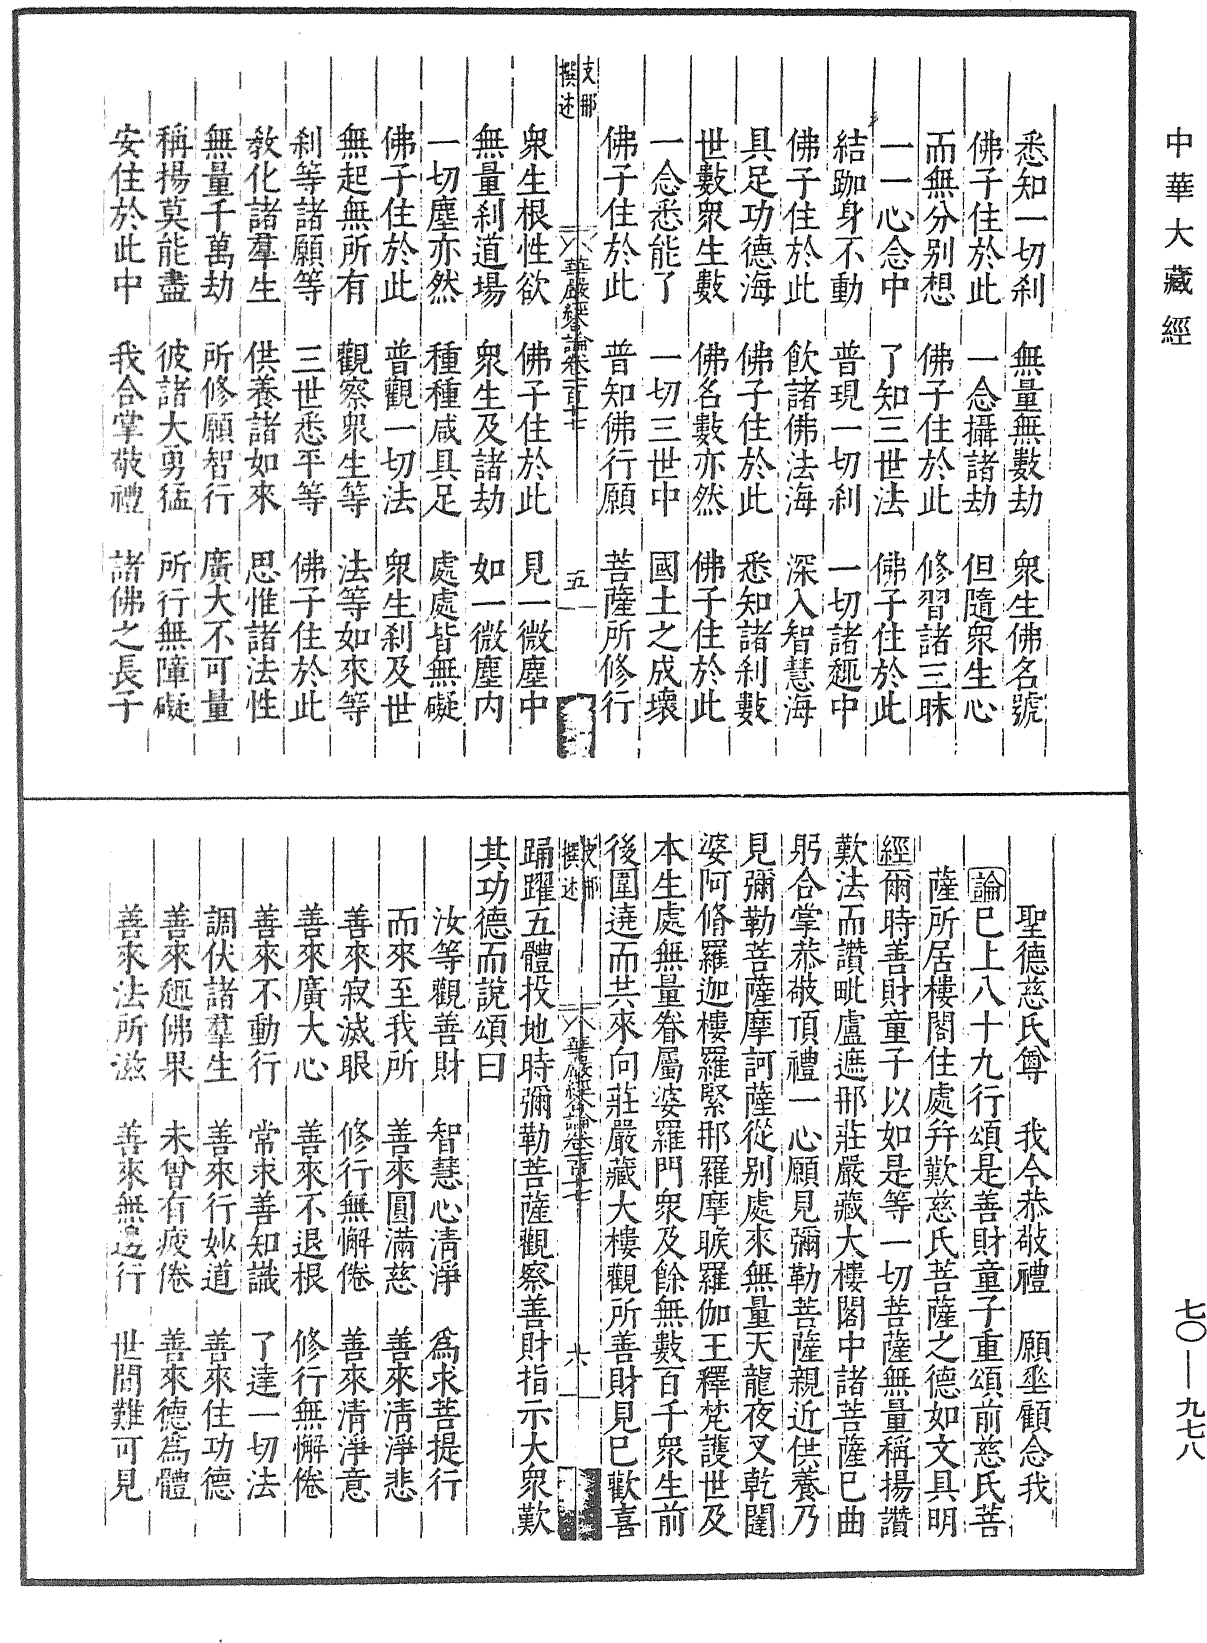 中華大藏經
悉知一切剎　無量無數劫　衆生佛名號
佛子住於此　一念攝諸劫　但隨衆生心
而無分別想　佛子住於此　修習諸三昧
一一心念中　了知三世法　佛子住於此
結跏身不動　普現一切剎　一切諸趣中
佛子住於此　飲諸佛法海　深入智慧海
具足功德海　佛子住於此　悉知諸剎數
世數衆生數　佛名數亦然　佛子住於此
一念悉能了　一切三世中　國土之成壞
佛子住於此　普知佛行願　菩薩所修行
支那撰述　華嚴經合論卷一百十七　五
衆生根性欲　佛子住於此　見一微塵中
無量剎道場　衆生及諸劫　如一微塵內
一切塵亦然　種種咸具足　處處皆無礙
佛子住於此　普觀一切法　衆生剎及世
無起無所有　觀察衆生等　法等如來等
剎等諸願等　三世悉平等　佛子住於此
敎化諸羣生　供養諸如來　思惟諸法性
無量千萬劫　所修願智行　廣大不可量
稱揚莫能盡　彼諸大勇猛　所行無障礙
安住於此中　我合掌敬禮　諸佛之長子
聖德慈氏尊　我今恭敬禮　願垂顧念我
論已上八十九行頌是善財童子重頌前慈氏菩
薩所居樓閣住處幷歎慈氏菩薩之德如文具明
經爾時善財童子以如是等一切菩薩無量稱揚讚
歎法而讚毗盧遮那莊嚴藏大樓閣中諸菩薩已曲
躬合掌恭敬頂禮一心願見彌勒菩薩親近供養乃
見彌勒菩薩摩訶薩從別處來無量天龍夜叉乾闥
婆阿脩羅迦樓羅緊那羅摩睺羅伽王釋梵護世及
本生處無量眷屬婆羅門衆及餘無數百千衆生前
後圍遶而共來向莊嚴藏大樓觀所善財見已歡喜
支那撰述　華嚴經合論卷一百十七　六
踊躍五體投地時彌勒菩薩觀察善財指示大衆歎
其功德而說頌曰
汝等觀善財　智慧心淸淨　爲求菩提行
而來至我所　善來圓滿慈　善來淸淨悲
善來寂滅眼　修行無懈倦　善來淸淨意
善來廣大心　善來不退根　修行無懈倦
善來不動行　常求善知識　了達一切法
調伏諸羣生　善來行妙道　善來住功德
善來趣佛果　未曾有疲倦　善來德爲體
善來法所滋　善來無邊行　世間難可見
七〇——九七八